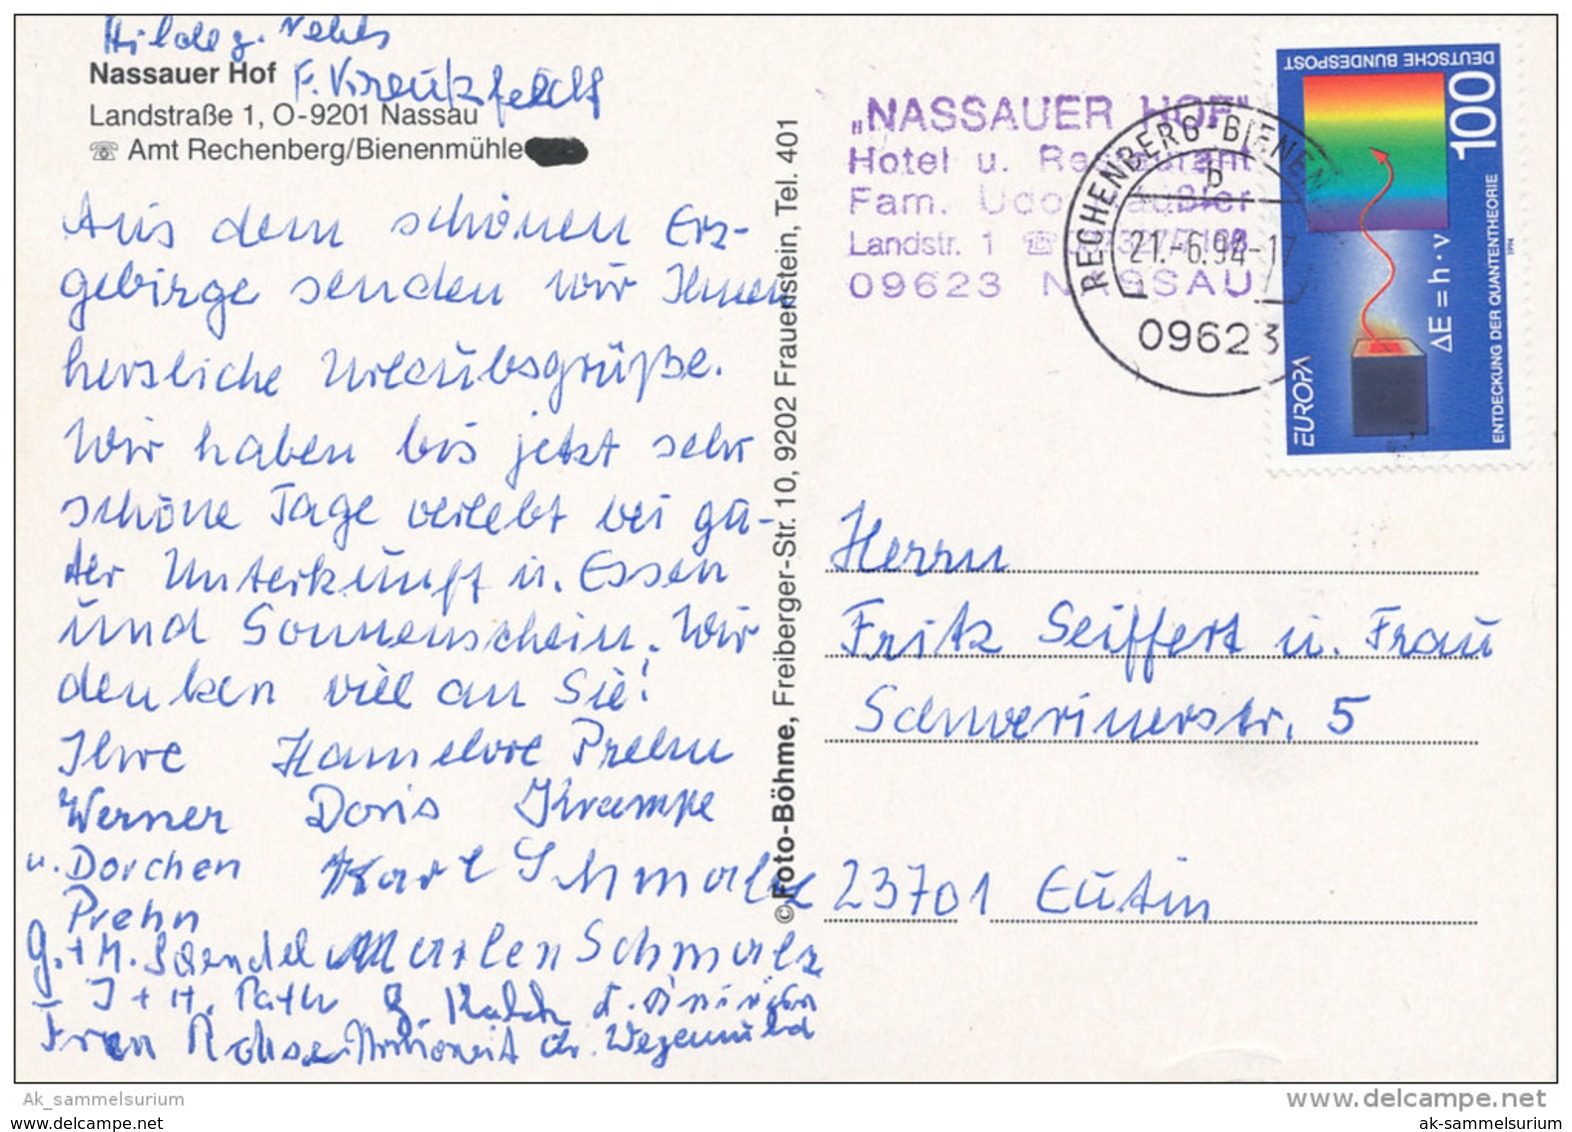 Nassauer Hof
F. Kreutzfeldt
Landstraße 1, O-9201 Nassau
☏ Amt Rechenberg/Bienenmühle
Aus dem schönen Erz-
gebirge senden wir Ihnen
herzliche Urlaubsgrüße.
Wir haben bis jetzt sehr
schöne Tage verlebt bei gu-
ter Unterkunft u. Essen
und Sonnenschein. Wir
denken viel an Sie!
Ihre Hannelore Prehn
Werner Doris Krampe
u. Dorchen Karl Schmalz
Prehn
G. + M. Marlen Schmalz
J + H.
Frau
© Foto-Böhme, Freiberger-Str. 10, 9202 Frauenstein, Tel. 401
„NASSAUER HOF"
Hotel u. Restaurant
Fam. Udo
Landstr. 1 ☏
09623 NASSAU
RECHENBERG-BIENEN
b
21.-6.94-17
09623
DEUTSCHE BUNDESPOST
100
ΔE = h · ν
EUROPA
ENTDECKUNG DER QUANTENTHEORIE
1994
Herrn
Fritz Seiffert u. Frau
Schwerinerstr. 5
23701 Eutin
Ak_sammelsurium
www.delcampe.net
www.delcampe.net
ak-sammelsurium